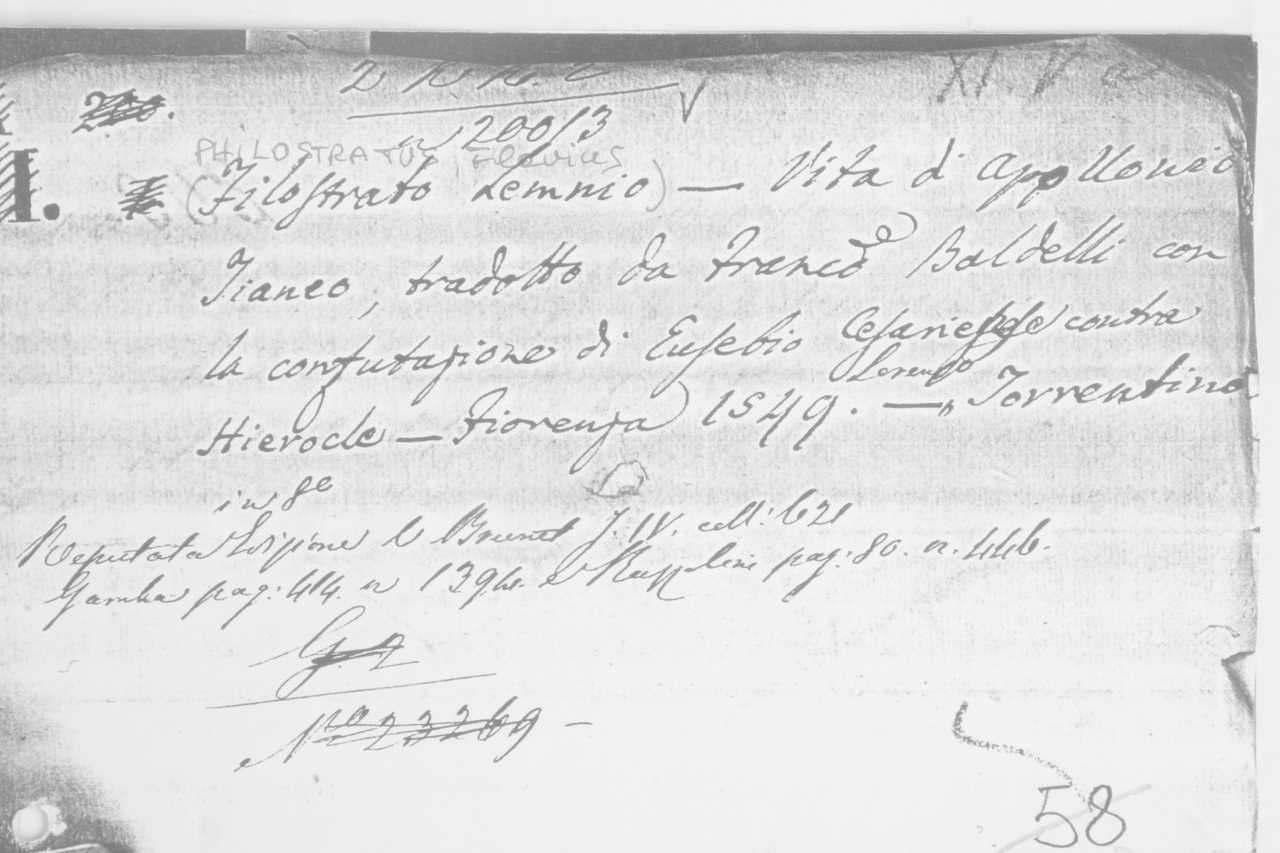 200.
200/3
PHILOSTRATUS, Flavius
(Filostrato Lemnio) — Vita d'Apollonio
Tianeo, tradotto da Franc.º Baldelli con
la confutazione di Eusebio Cesariense contra
Hierocle — Fiorenza 1549. — Lorenzo Torrentino
in 8º
Reputata Edizione V. Brunet T. IV. coll: 621
Gamba pag: 414. n 1394. e Razzolini pag: 80. n. 446.
Nº 23269 —
58